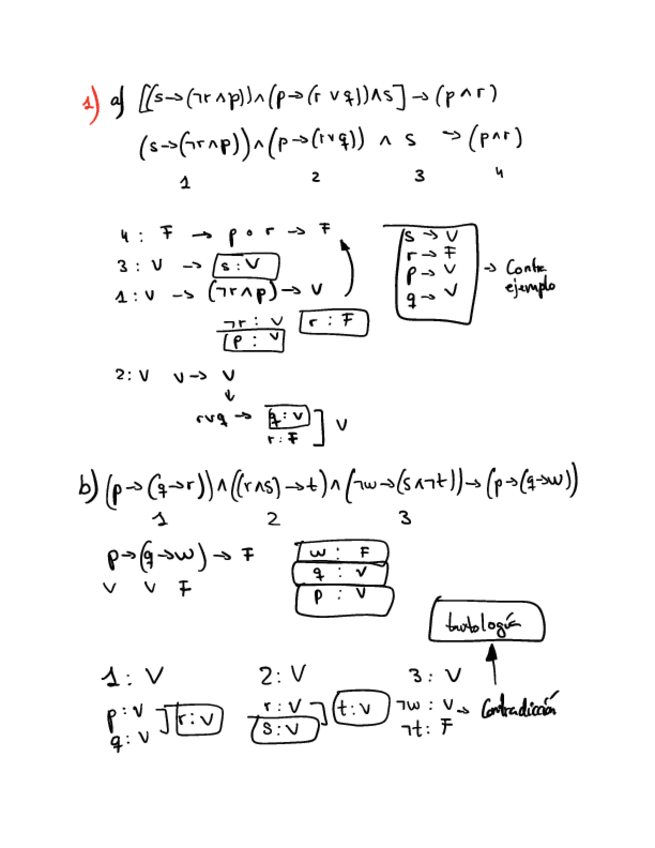 1) a) [(s→(¬r∧p))∧(p→(r∨q))∧s]→(p∧r)
(s→(¬r∧p))∧(p→(r∨q)) ∧ s → (p∧r)
1 2 3 4
4: F → p o r → F
3: V → s: V
1: V → (¬r∧p)→ V
¬r: V r: F
p: V
s → V
r → F
p → V
q → V
→ Contra
ejemplo
2: V V → V
↓
r∨q → q: V ] V
r: F
b) (p→(q→r))∧((r∧s)→t)∧(¬w→(s∧¬t))→(p→(q→w))
1 2 3
p→(q→w) → F
V V F
w: F
q: V
p: V
tautología
1: V 2: V 3: V
p: V ] r: V
q: V
r: V ] t: V
s: V
¬w: V → Contradicción
¬t: F